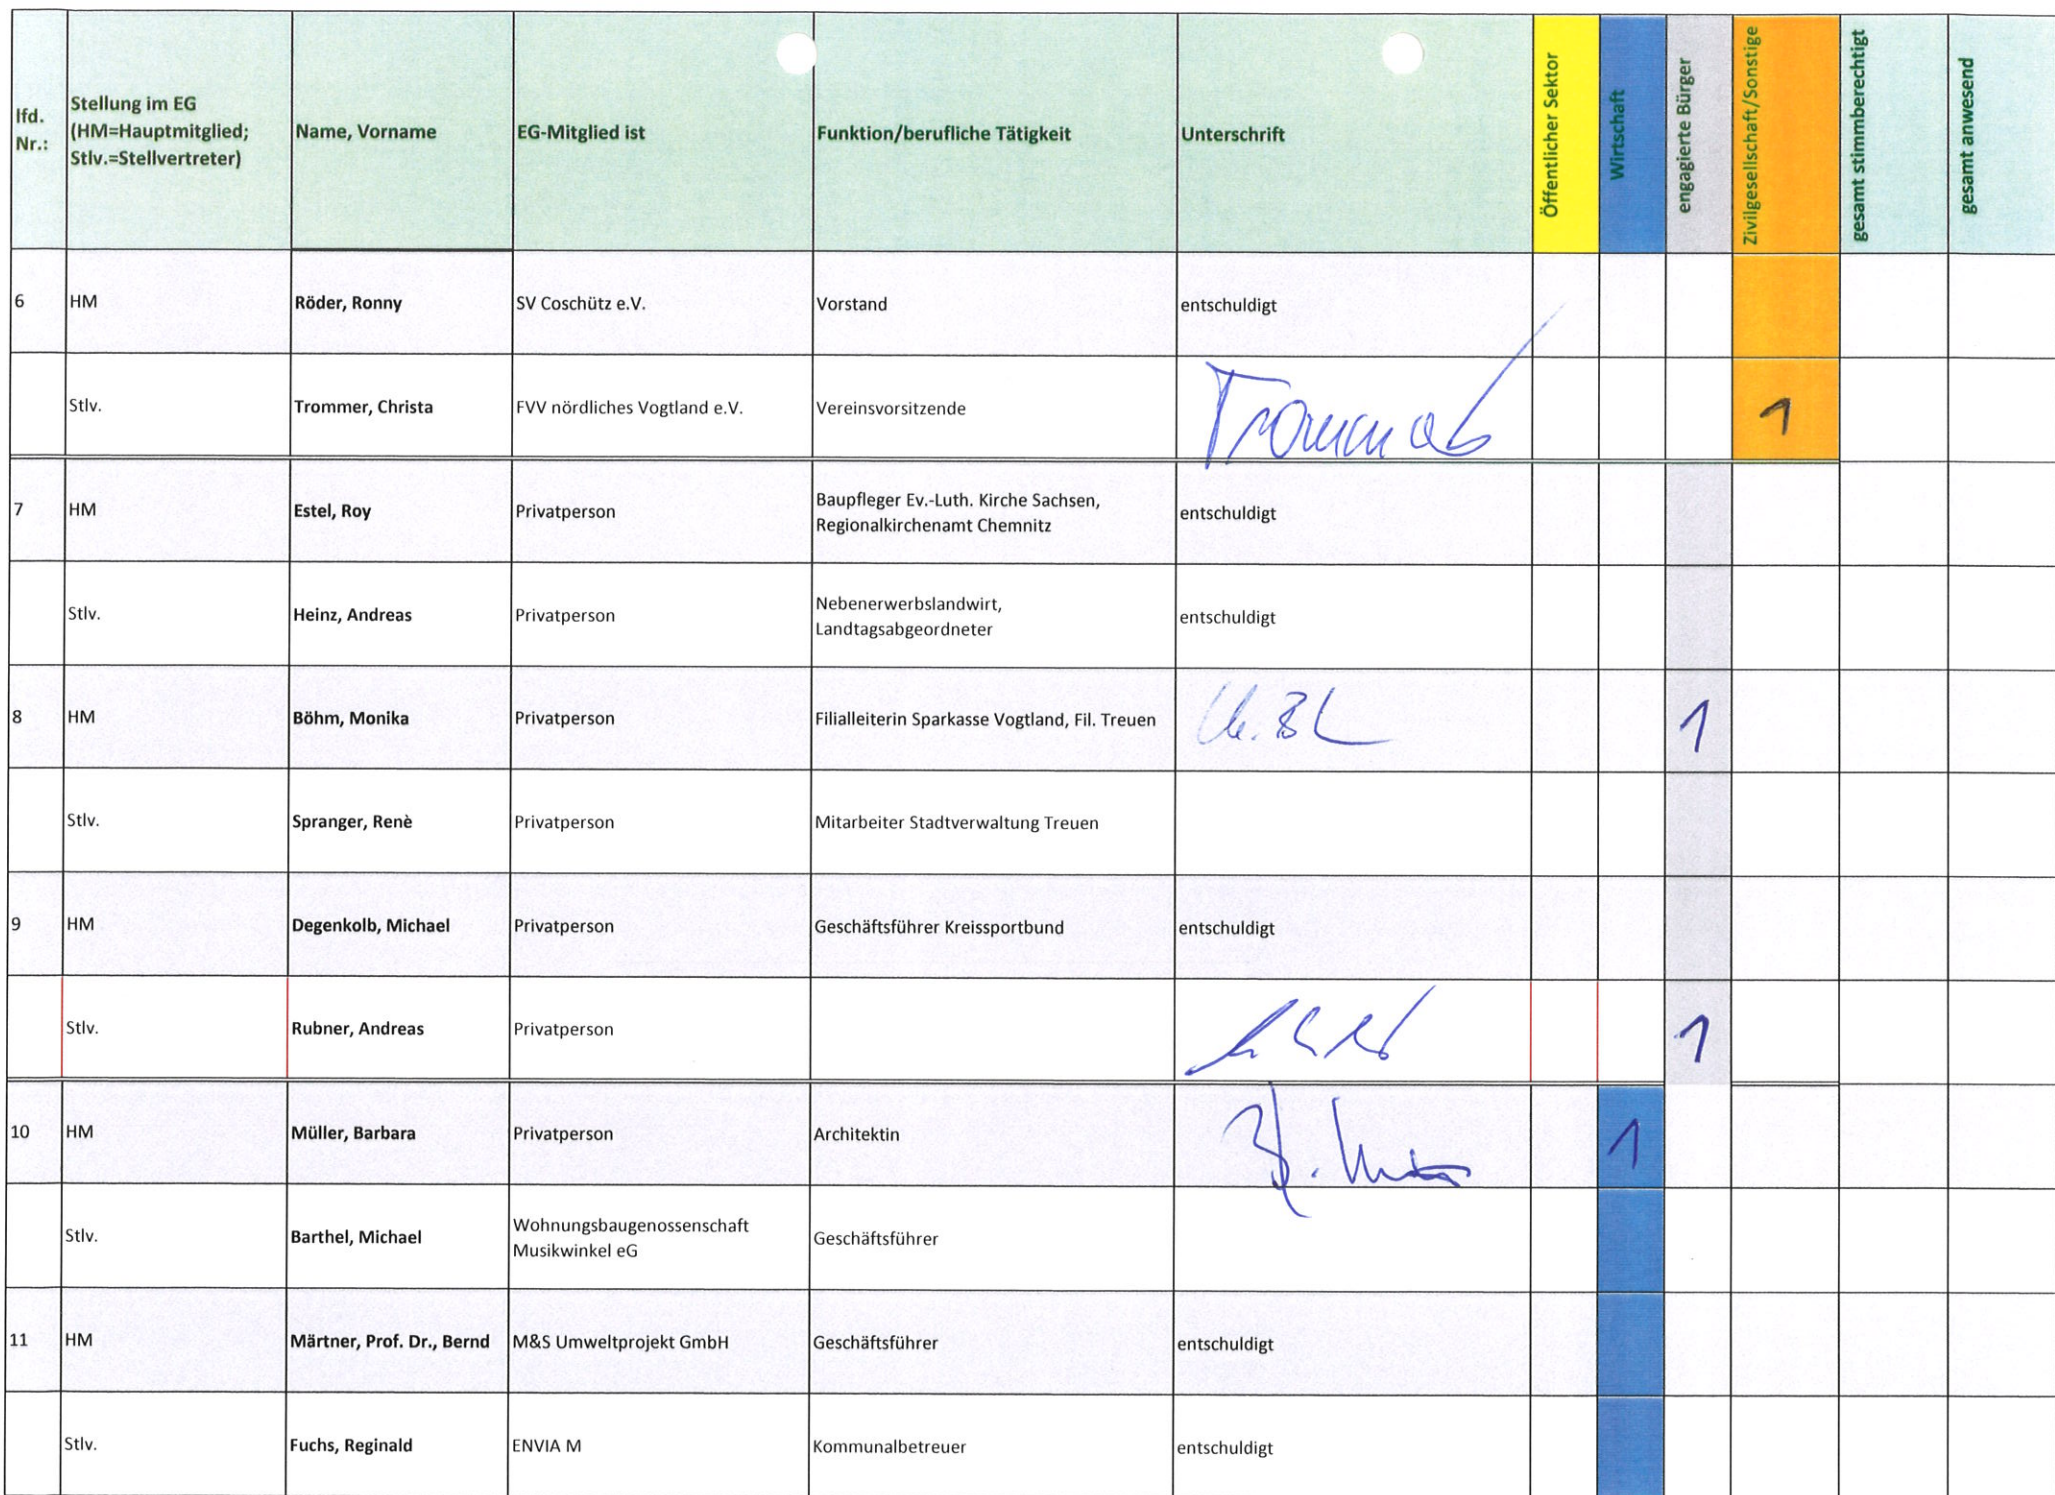 lfd. Nr.:
Stellung im EG
(HM=Hauptmitglied;
Stlv.=Stellvertreter)
Name, Vorname
EG-Mitglied ist
Funktion/berufliche Tätigkeit
Unterschrift
Öffentlicher Sektor
Wirtschaft
engagierte Bürger
Zivilgesellschaft/Sonstige
gesamt stimmberechtigt
gesamt anwesend
6 HM Röder, Ronny SV Coschütz e.V. Vorstand entschuldigt
Stlv. Trommer, Christa FVV nördliches Vogtland e.V. Vereinsvorsitzende Trommer 1
7 HM Estel, Roy Privatperson Baupfleger Ev.-Luth. Kirche Sachsen,
Regionalkirchenamt Chemnitz entschuldigt
Stlv. Heinz, Andreas Privatperson Nebenerwerbslandwirt,
Landtagsabgeordneter entschuldigt
8 HM Böhm, Monika Privatperson Filialleiterin Sparkasse Vogtland, Fil. Treuen 1
Stlv. Spranger, Renè Privatperson Mitarbeiter Stadtverwaltung Treuen
9 HM Degenkolb, Michael Privatperson Geschäftsführer Kreissportbund entschuldigt
Stlv. Rubner, Andreas Privatperson 1
10 HM Müller, Barbara Privatperson Architektin 1
Stlv. Barthel, Michael Wohnungsbaugenossenschaft
Musikwinkel eG Geschäftsführer
11 HM Märtner, Prof. Dr., Bernd M&S Umweltprojekt GmbH Geschäftsführer entschuldigt
Stlv. Fuchs, Reginald ENVIA M Kommunalbetreuer entschuldigt